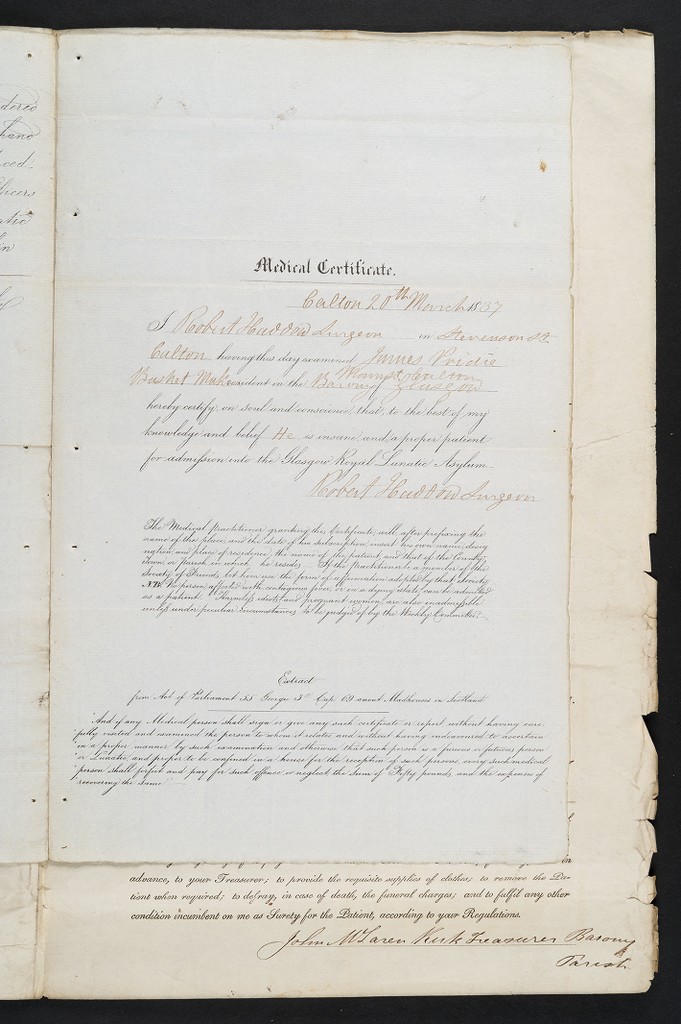 dered
hand
Medical Certificate.
Calton 20th March 1837
I Robert Haddow Surgeon in Stevenson St.
Calton having this day examined James Pridie
Basket Maker resident in the Barony of Glasgow
hereby certify, on soul and conscience, that, to the best of my
knowledge and belief He is insane and a proper patient
for admission into the Glasgow Royal Lunatic Asylum
Robert Haddow Surgeon
The Medical practitioner granting this Certificate, will, after prefixing the
name of the place, and the date of his subscription, insert his own name, desig
nation, and place of residence, the name of the patient, and that of the County,
Town, or parish in which he resides. If the Practitioner be a member of the
Society of Friends, let him use the form of affirmation adopted by that Society.
NB. No person affected with contagious fever, or in a dying state, can be admitted
as a patient. Harmless idiots, and pregnant women, are also inadmissible
unless under peculiar circumstances, to be judged of by the Weekly Committee.
Extract
from Act of Parliament 55 George 3d Cap. 69 anent Madhouses in Scotland
"And if any Medical person shall sign or give any such certificate or report without having care
"fully visited and examined the person to whom it relates and without having endeavoured to ascertain
"in a proper manner by such examination and otherwise that such person is a furious or fatuous person
"or Lunatic, and proper to be confined in a house for the reception of such persons, every such medical
"person shall forfeit and pay for such offence or neglect the sum of Fifty pounds, and the expenses of
"recovering the same"
advance, to your Treasurer; to provide the requisite supplies of clothes; to remove the Pa-
tient when required; to defray, in case of death, the funeral charges; and to fulfil any other
condition incumbent on me as Surety for the Patient, according to your Regulations.
John McLaren Kirk Treasurer Barony
Parish